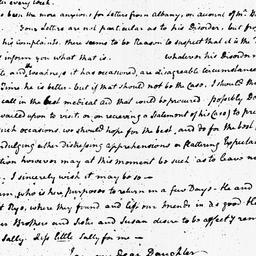 every week.
been the more anxious for Letters from Albany, on account of Mr. B
Your Letters are not particular as to his Disorder, but from
his complaints, there seems to be Reason to suspect that it is the
inform you what that is. whatever his Disorder
and weakness it has occasioned, are disagreeable circumstances
Time he is better— but if that should not be the Case, I should
call in the best medical aid that could be procured. possibly Do
vailed upon to visit or on receiving a Statement of his Case to pre
such occasions, we should hope for the best, and do for the best,
ndulging either distressing apprehensions or flattering Expecta
tion however may at this moment be such as to leave no
I sincerely wish it may be so—
who is here purposes to return in a few Days— He and
Rye, where they found and left our friends in good He
Brothers and Sister and Susan desire to be affecty rem
Sally. Kiss little Sally for me—
my Dear Daughter